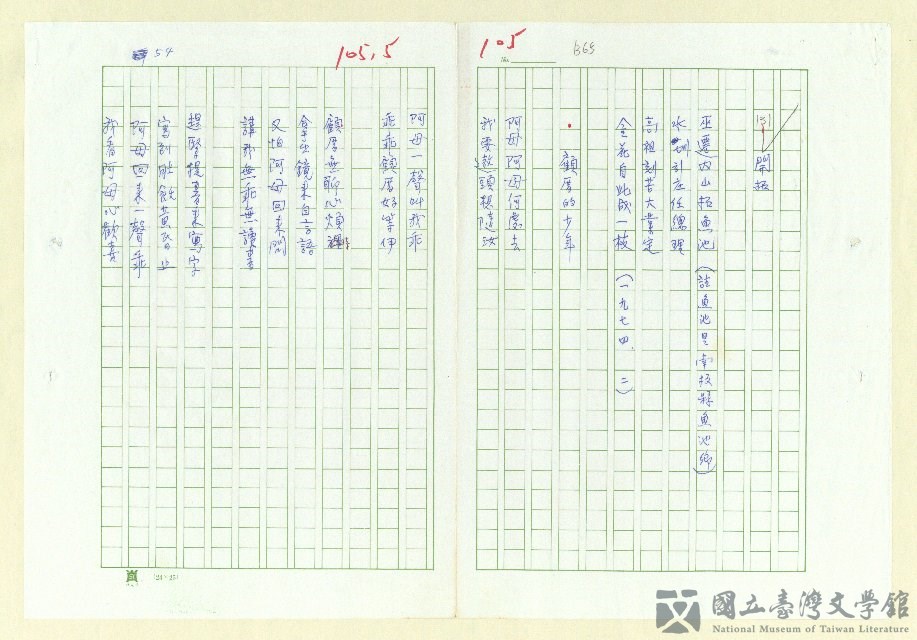 105
B65
131 開拓
巫遷內山拓魚池(註魚池是南投縣魚池鄉)
水圳引庄任總理
高祖刻苦大業定
金花自此成一枝 (一九七四、二)
顧厝的少年
阿母阿母何處去
我要
頭想隨汝
105,5
54
阿母一聲叫我乖
乖乖顧厝好等伊
顧厝無聊心煩
拿出鏡來自言語
又怕阿母回來罵
講我無乖無讀書
趕緊提筆來寫字
寫到肚飢黃昏止
阿母回來一聲乖
我看阿母心歡喜
(24×25)
國立臺灣文學館
National Museum of Taiwan Literature